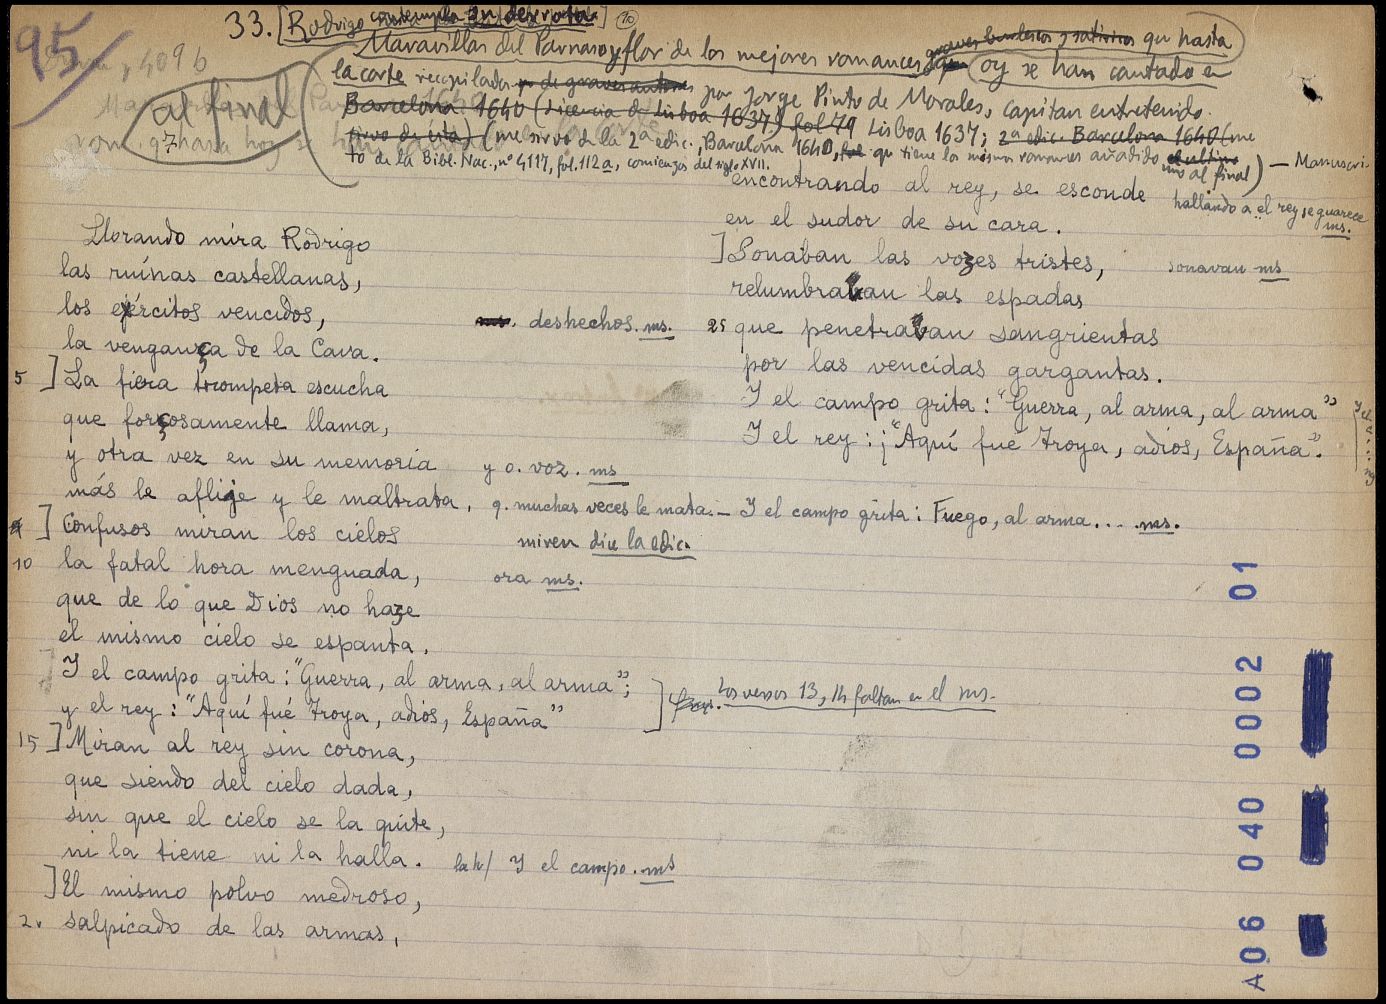 95
33. [Rodrigo contempla su derrota] 10
Maravillas del Parnaso y flor de los mejores romances graves burlescos y satiricos que hasta
oy se han cantado en
la corte recopilados por Jorge Pinto de Morales, capitan entretenido.
Barcelona 1640 (Licencia de Lisboa 1637) fol 79 Lisboa 1637; 2ª edic. Barcelona 1640 (me
sirvo de ésta) (me sirvo de la 2ª edic., Barcelona 1640, fol que tiene los mismos romances añadido el ultimo
uno al final) — Manuscri-
to de la Bibl. Nac., nº 4117, fol. 112a, comienzos del siglo XVII.
al final
Llorando mira Rodrigo
las ruínas castellanas,
los ejércitos vencidos, deshechos. ms.
la vengança de la Cava.
5 ] La fiera trompeta escucha
que forçosamente llama,
y otra vez en su memoria y o. voz. ms
más le aflije y le maltrata, q. muchas veces le mata. —
] Confusos miran los cielos miren dice la edic.
10 la fatal hora menguada, ora ms.
que de lo que Dios no haze
el mismo cielo se espanta.
Y el campo grita: "Guerra, al arma, al arma";
y el rey: "Aquí fué Troya, adiós, España" ] los versos 13, 14 faltan en el ms.
15 ] Miran al rey sin corona,
que siendo del cielo dada,
sin que el cielo se la quite,
ni la tiene ni la halla. la h/ Y el campo. ms
] El mismo polvo medroso,
20 salpicado de las armas,
encontrando al rey, se esconde hallando a el rey se guarece ms.
en el sudor de su cara.
] Sonaban las vozes tristes, sonavan ms
relumbraban las espadas
25 que penetraban sangrientas
por las vencidas gargantas.
Y el campo grita: "Guerra, al arma, al arma"
Y el rey: ¡"Aquí fué Troya, adiós, España."
Y el campo grita: Fuego, al arma.... ms.
A06 040 0002 01